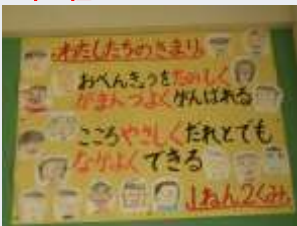 わたしたちのきまり
おべんきょうをたのしく
がまんづよくがんばれる
こころやさしくだれとでも
なかよくできる
1ねん2くみ